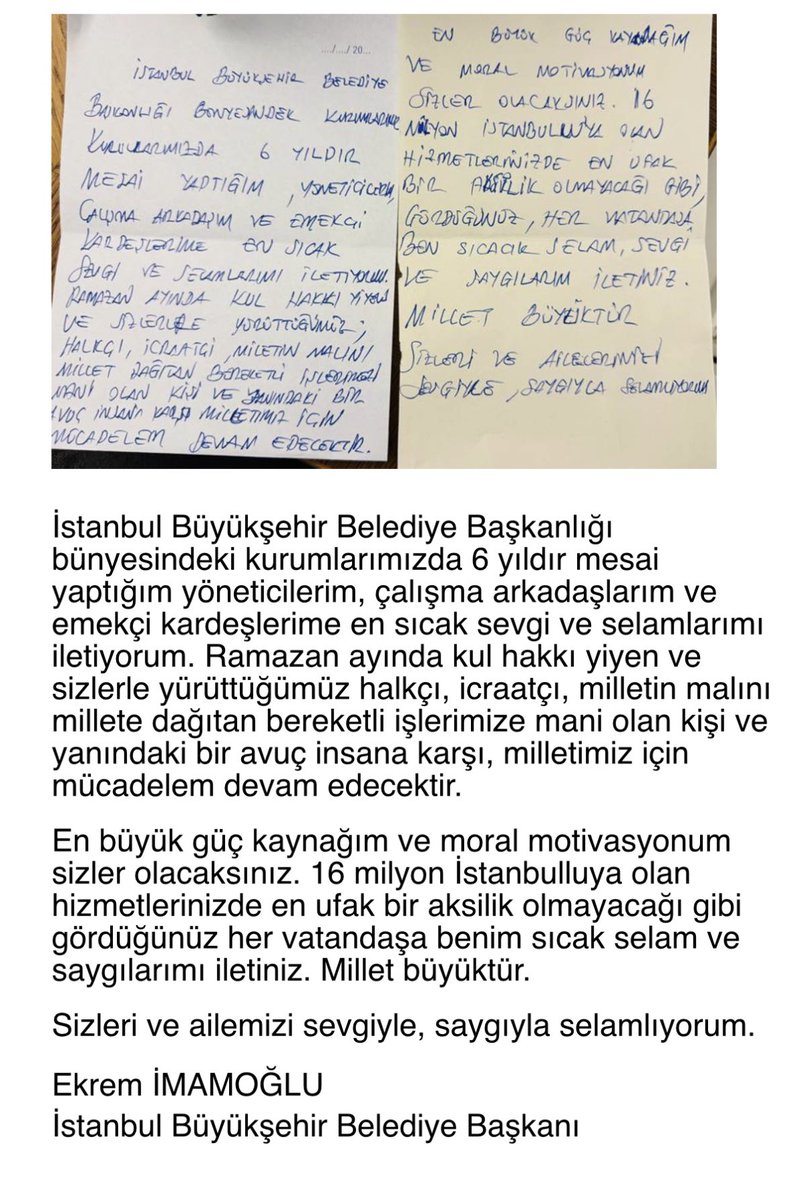 ..../..../ 20...
İSTANBUL BÜYÜKŞEHİR BELEDİYE
BAŞKANLIĞI BÜNYESİNDEK KURUMLARIMIZ
KURULLARIMIZDA 6 YILDIR
MESAİ YAPTIĞIM, YÖNETİCİLERİM,
ÇALIŞMA ARKADAŞIM VE EMEKÇİ
KARDEŞLERİME EN SICAK
SEVGİ VE SELAMLARIMI İLETİYORUM.
RAMAZAN AYINDA KUL HAKKI YİYEN
VE SİZLERLE YÜRÜTTÜĞÜMÜZ;
HALKÇI, İCRAATÇI, MİLLETİN MALINI
MİLLET DAĞITAN BEREKETLİ İŞLERİMİZİ
MANİ OLAN KİŞİ VE YANINDAKİ BİR
AVUÇ İNSANA KARŞI MİLLETİMİZ İÇİN
MÜCADELEM DEVAM EDECEKTİR.
EN BÜYÜK GÜÇ KAYNAĞIM
VE MORAL MOTİVASYONUM
SİZLER OLACAKSINIZ. 16
MİLYON İSTANBULLUYA OLAN
HİZMETLERİNİZDE EN UFAK
BİR OLMAYACAĞI GİBİ,
GÖRDÜĞÜNÜZ, HER VATANDAŞA
BEN SICACIK SELAM, SEVGİ
VE SAYGILARIM İLETİNİZ.
MİLLET BÜYÜKTÜR
SİZLERİ VE AİLELERİNİZİ
SEVGİYLE, SAYGIYLA SELAMLIYORUM
İstanbul Büyükşehir Belediye Başkanlığı
bünyesindeki kurumlarımızda 6 yıldır mesai
yaptığım yöneticilerim, çalışma arkadaşlarım ve
emekçi kardeşlerime en sıcak sevgi ve selamlarımı
iletiyorum. Ramazan ayında kul hakkı yiyen ve
sizlerle yürüttüğümüz halkçı, icraatçı, milletin malını
millete dağıtan bereketli işlerimize mani olan kişi ve
yanındaki bir avuç insana karşı, milletimiz için
mücadelem devam edecektir.
En büyük güç kaynağım ve moral motivasyonum
sizler olacaksınız. 16 milyon İstanbulluya olan
hizmetlerinizde en ufak bir aksilik olmayacağı gibi
gördüğünüz her vatandaşa benim sıcak selam ve
saygılarımı iletiniz. Millet büyüktür.
Sizleri ve ailemizi sevgiyle, saygıyla selamlıyorum.
Ekrem İMAMOĞLU
İstanbul Büyükşehir Belediye Başkanı